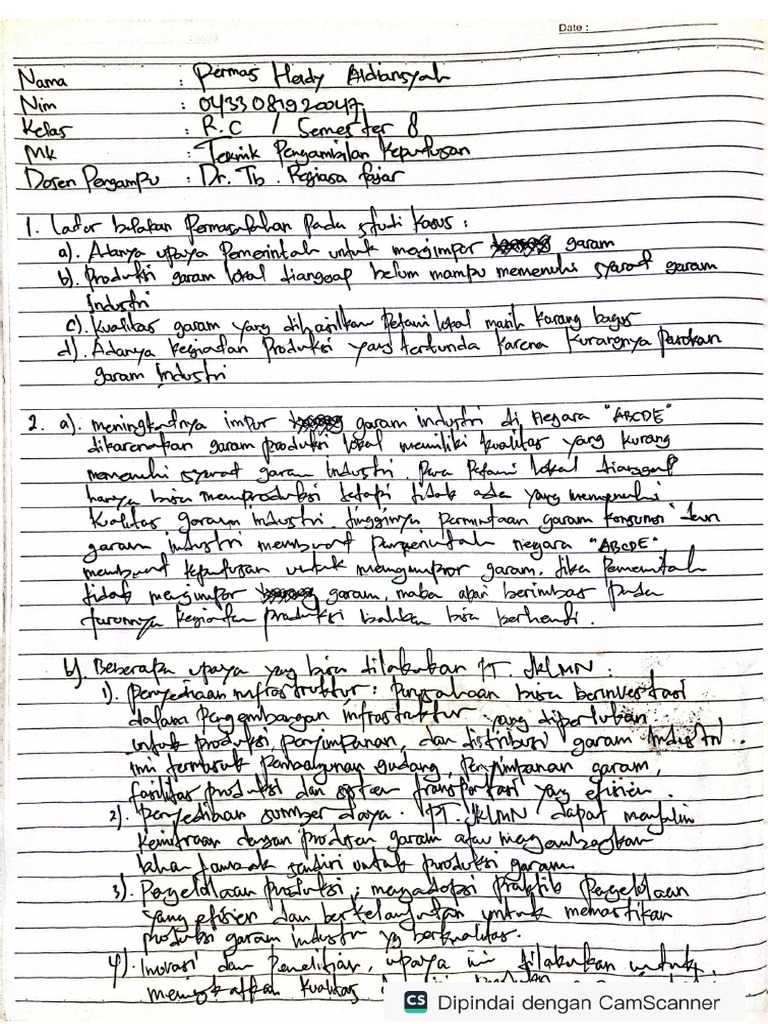 Date :
Nama : Permas Hendy Aldiansyah
Nim : 043308192004
Kelas : R.C / Semester 8
MK : Teknik Pengambilan Keputusan
Dosen Pengampu : Dr. Tb. Regiasa fajar
1. Latar belakan Permasalahan pada studi kasus :
a). Adanya upaya Pemerintah untuk mengimpor garam
b). Produksi garam lokal dianggap belum mampu memenuhi syarat garam
Industri
c). Kualitas garam yang dihasilkan Petani lokal masih kurang bagus
d). Adanya kegiatan Produksi yang tertunda karena kurangnya pasokan
garam Industri
2. a). meningkatnya impor garam industri di Negara "ABCDE"
dikarenakan garam produksi lokal memiliki kualitas yang kurang
memenuhi syarat garam industri. Para Petani lokal dianggap
hanya bisa memproduksi tetapi tidak ada yang memenuhi
kualitas garam Industri. tingginya permintaan garam konsumsi dan
garam industri membuat pemerintah negara "ABCDE"
membuat keputusan untuk mengimpor garam. Jika Pemerintah
tidak mengimpor garam, maka akan berimbas pada
turunnya kegiatan produksi bahkan bisa berhenti.
b). Beberapa upaya yang bisa dilakukan PT. JKLMN :
1). Penyediaan infrastruktur : Perusahaan bisa berinvestasi
dalam Pengembangan infrastruktur yang diperlukan
untuk produksi, penyimpanan, dan distribusi garam Industri.
ini termasuk Pembangunan gudang, penyimpanan garam,
fasilitas produksi dan sistem transportasi yang efisien.
2). Penyediaan sumber daya. PT. JKLMN dapat menjalin
kemitraan dengan produsen garam atau mengembangkan
lahan tambak sendiri untuk produksi garam.
3). Pengelolaan produksi ; mengadopsi praktik Pengelolaan
yang efisien dan berkelanjutan untuk memastikan
produksi garam industri yg berkualitas.
4). Inovasi dan Penelitian, upaya ini dilakukan untuk
meningkatkan kualitas
CS Dipindai dengan CamScanner